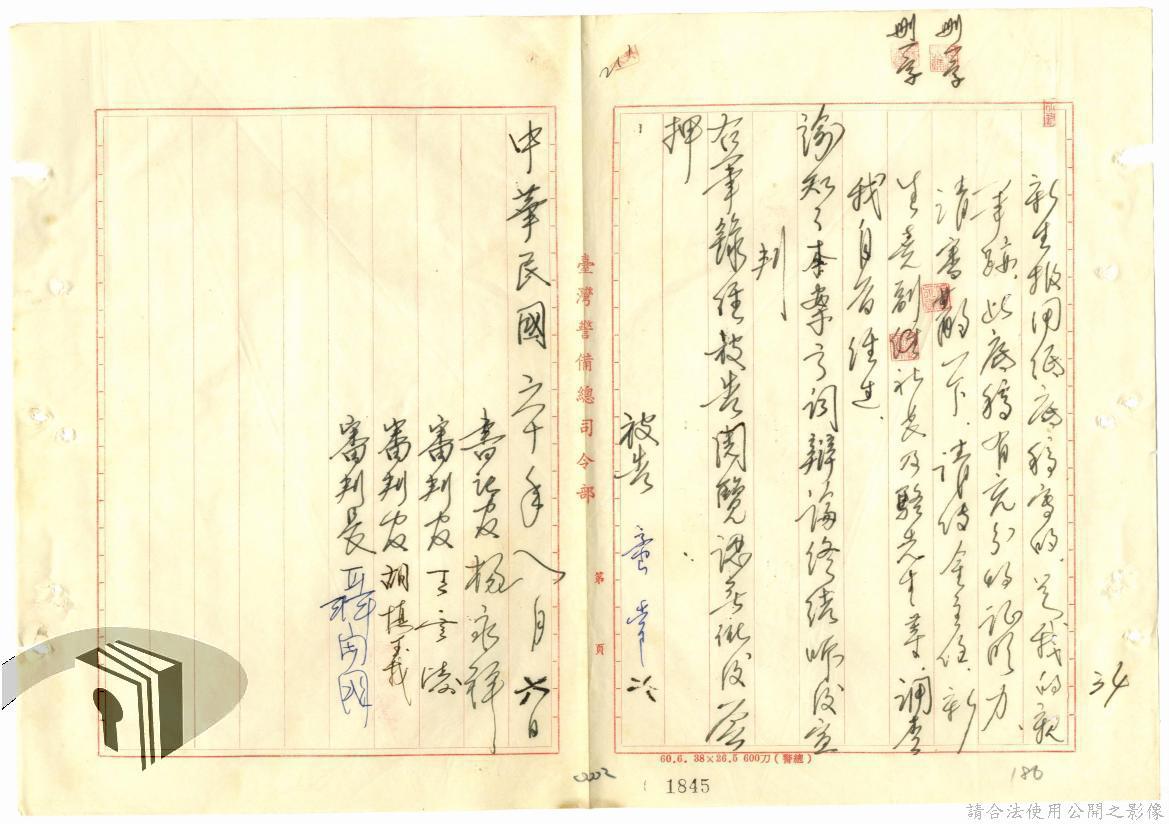 刪一字
刪一字
34
新生報用紙底稿寫的、是我的親
筆蹟、此底稿有充分的証明力
請審酌一下、請傳金主任、新
生堯副社長及駱先生等、調查
我自有經過、
諭知本案言詞辯論終結聽後宣
判
右筆錄經被告閱覽認無訛後簽
押
被告
臺灣警備總司令部
第
頁
中華民國六十年八月六日
書記官楊永祥
審判官
審判官胡慎義
審判長聶開國
60.6. 38×26.5 600刀(警總)
1845
186
請合法使用公開之影像